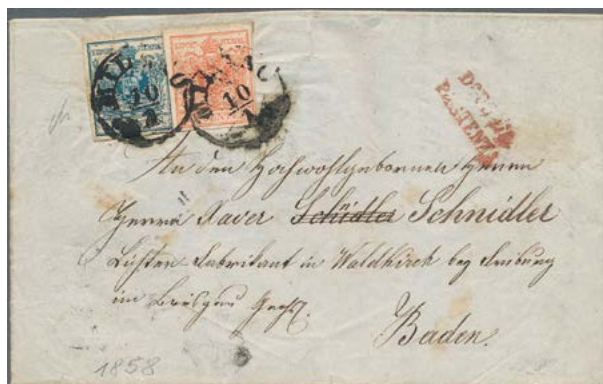 MIL
10
SERA
10
1
DOPO LA
PARTENZA
An den Hochwohlgebornen Herrn
Herrn Xaver Schüdler Schnidler
Lüster Fabrikant in Waldkirch bey Freiburg
im Breisgau
Baden.
1858